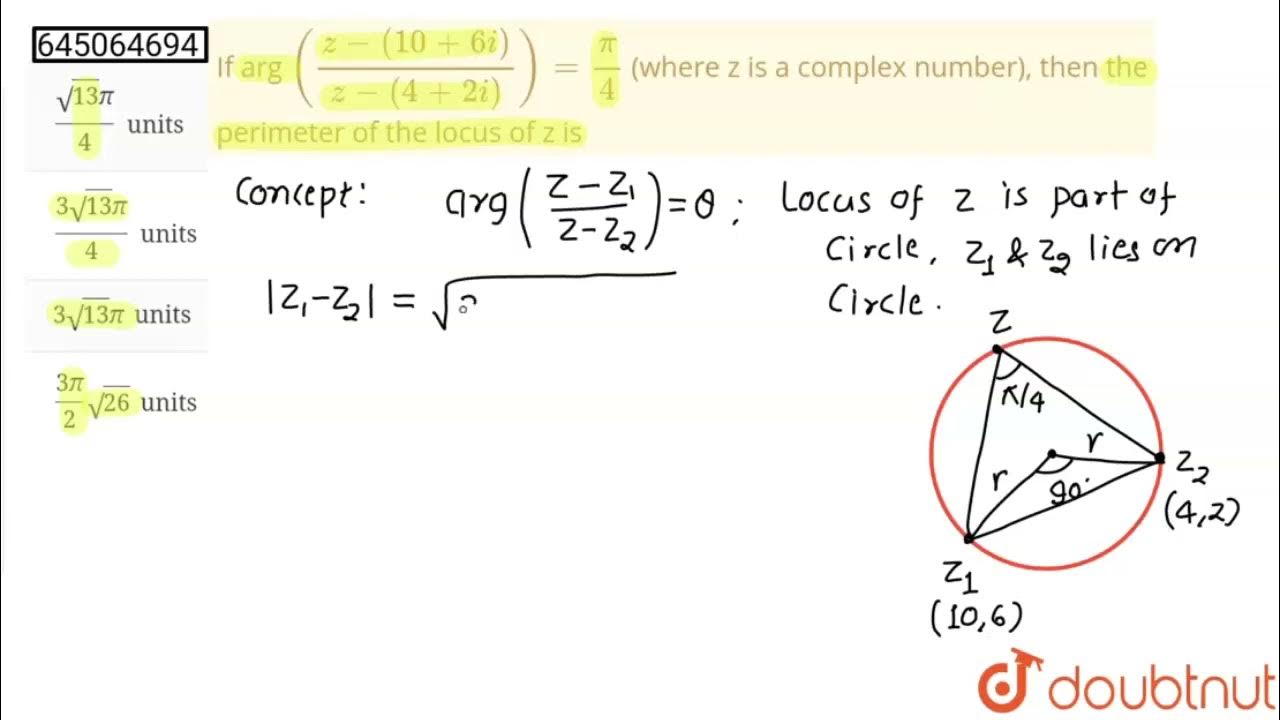 645064694
If arg ( \frac{z − (10 + 6i)}{z − (4 + 2i)} ) = \frac{π}{4} (where z is a complex number), then the
perimeter of the locus of z is
\frac{√13π}{4} units
\frac{3√13π}{4} units
3√13π units
\frac{3π}{2}√26 units
Concept: arg ( \frac{z − z₁}{z − z₂} ) = θ ; Locus of z is part of
Circle, z₁ & z₂ lies on
Circle.
|z₁ − z₂| = √
z
π/4
r
r
90°
z₂
(4,2)
z₁
(10,6)
doubtnut